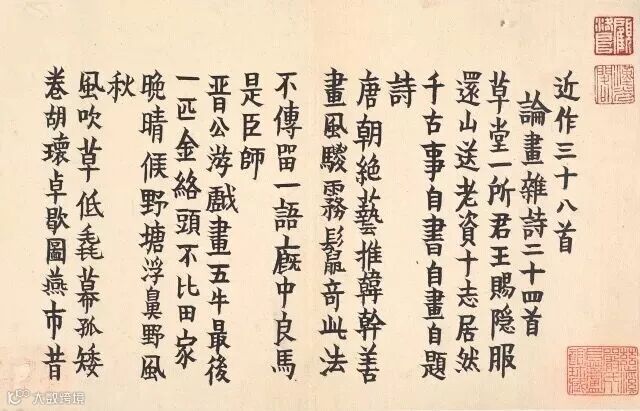 近作三十八首
論畫雜詩二十四首
草堂一所君王賜隱服
還山送老資十志居然
千古事自書自畫自題
詩
唐朝絶藝推韓幹善
畫風騣霧鬣奇此法
不傳留一語廄中良馬
是臣師
晋公游戲畫五牛最後
一匹金絡頭不比田家
晚晴候野塘浮鼻野風
秋
風吹草低毳幕孤矮
卷胡瓌卓歇圖燕市昔
大数跨境